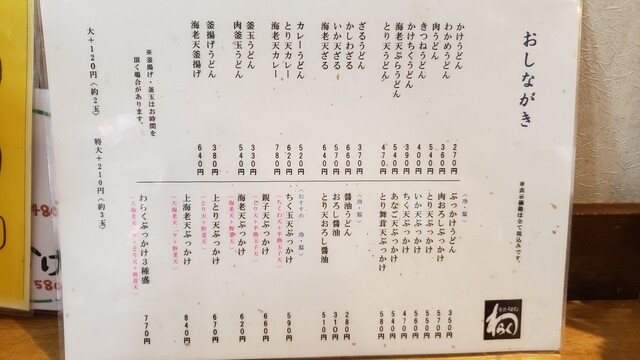 おしながき
※表示価格は全て税込みです。
かけうどん 270円
わかめうどん 360円
肉うどん 540円
きつねうどん 400円
かけちくうどん 390円
海老天ぷらうどん 540円
とり天うどん 470円
ざるうどん 370円
かしわざる 660円
いか天ざる 570円
海老天ざる 640円
カレーうどん 520円
とり天カレー 620円
海老天カレー 780円
釜玉うどん 330円
肉釜玉うどん 540円
釜揚げうどん 380円
海老天釜揚げ 640円
※釜揚げ・釜玉はお時間を
頂く場合があります。
大+120円(約2玉) 特大+210円(約3玉)
(冷・温)
ぶっかけうどん 350円
肉おろしぶっかけ 570円
とり天ぶっかけ 550円
いか天ぶっかけ 560円
ちく天ぶっかけ 470円
あなご天ぶっかけ 540円
とり舞茸天ぶっかけ 580円
(冷・温)
醤油うどん 280円
おろし醤油 310円
とり天おろし醤油 510円
(おすすめ 冷・温)
ちく玉天ぶっかけ 590円
(ちくわ天+半熟玉子天)
親子天ぶっかけ 660円
(とり天+半熟玉子天)
海老天ぶっかけ 620円
(海老天+野菜天)
上とり天ぶっかけ 670円
(とり天+野菜天)
上海老天ぶっかけ 840円
わらくぶっかけ3種盛 770円
わらく